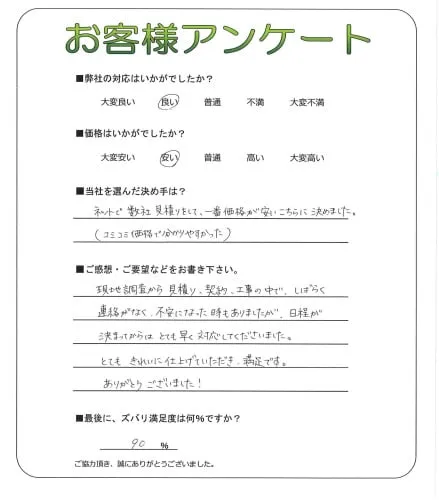 お客様アンケート
■弊社の対応はいかがでしたか？
大変良い 良い 普通 不満 大変不満
■価格はいかがでしたか？
大変安い 安い 普通 高い 大変高い
■当社を選んだ決め手は？
ネットで数社見積りをして、一番価格が安いこちらに決めました。
（コミコミ価格で分かりやすかった）
■ご感想・ご要望などをお書き下さい。
現地調査から見積り、契約、工事の中で、しばらく
連絡がなく、不安になった時もありましたが、日程が
決まってからはとても早く対応してくださいました。
とてもきれいに仕上げていただき、満足です。
ありがとうございました！
■最後に、ズバリ満足度は何%ですか？
90 %
ご協力頂き、誠にありがとうございました。